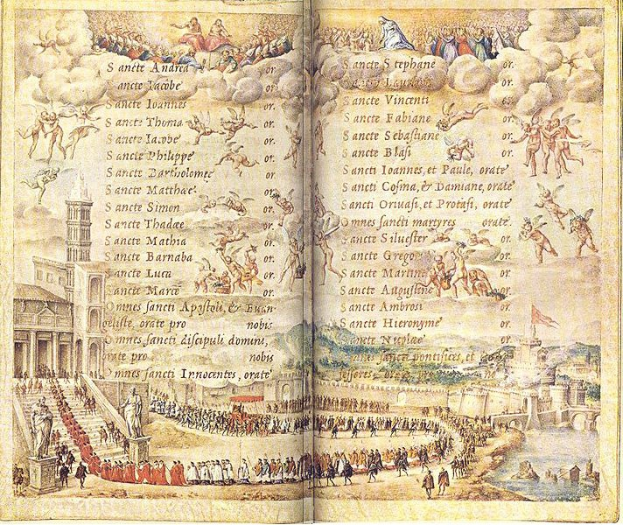 Sancte Andrea or.
Sancte Iacobe or.
Sancte Ioannes or.
Sancte Thoma or.
Sancte Iacobe or.
Sancte Philippe or.
Sancte Bartholomee or.
Sancte Matthaee or.
Sancte Simon or.
Sancte Thadae or.
Sancte Mathia or.
Sancte Barnaba or.
Sancte Luca or.
Sancte Marce or.
Omnes sancti Apostoli, & Euan
geliste, orate pro nobis
Omnes sancti discipuli domini,
orate pro nobis
Omnes sancti Innocentes, orate
Sancte Stephane or.
Sancte Laurenti or.
Sancte Vincenti or.
Sancte Fabiane or.
Sancte Sebastiane or.
Sancte Blasi or.
Sancti Ioannes, et Paule, orate
Sancti Cosma, & Damiane, orate
Sancti Geruasi, et Protasi, orate
Omnes sancti martyres orate.
Sancte Siluester or.
Sancte Gregori or.
Sancte Martine or.
Sancte Augustine or.
Sancte Ambrosi or.
Sancte Hieronyme or.
Sancte Nicolae or.
Omnes sancti pontifices, et
orate